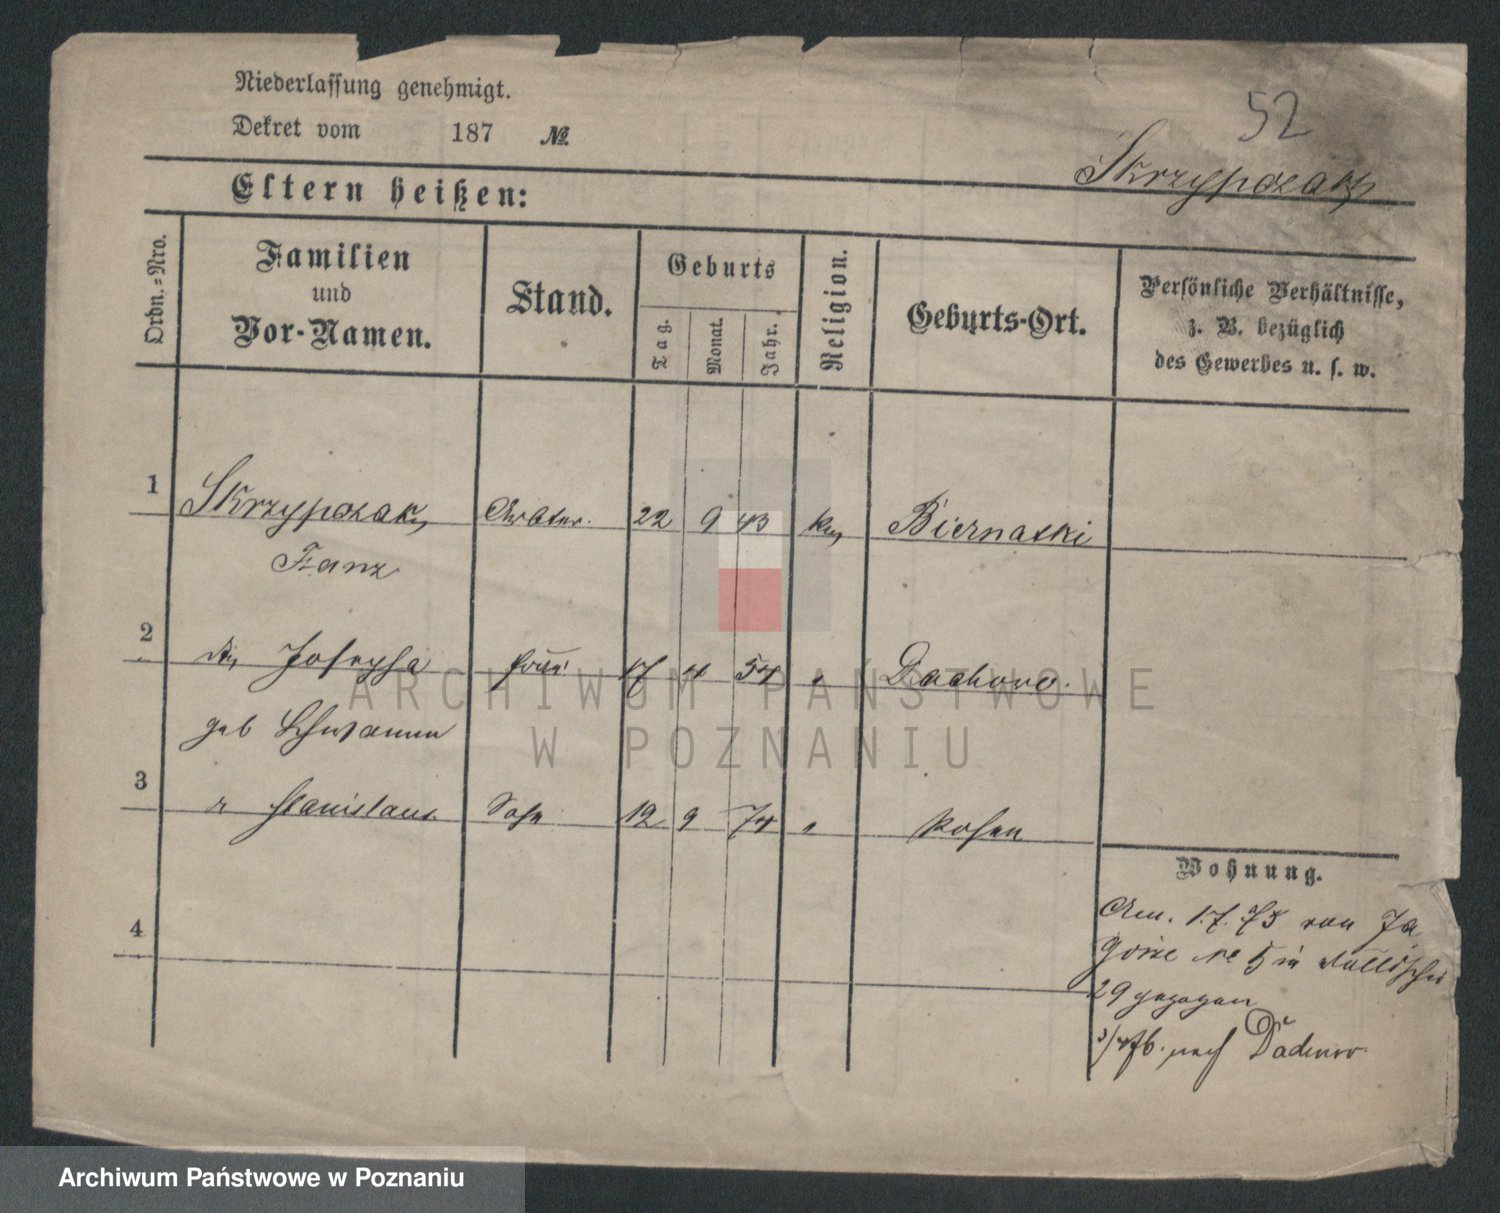 Niederlassung genehmigt.
Dekret vom 187 №
52
Skrzypczak
Eltern heißen:
Ordn.-Nro.
Familien und Vor-Namen.
Stand.
Geburts
Tag.
Monat.
Jahr.
Religion.
Geburts-Ort.
Persönliche Verhältnisse,
z. B. bezüglich
des Gewerbes u. s. w.
1 Skrzypczak Arbtr. 22 9 43 Biernatki
Franz
2 Josepha Frau 17 4 54 " Dachowo.
geb
3 " Stanislaus Sohn 12 9 74 " Posen
4
Wohnung.
Am. 1.7.75 von Za
gorze № 5 in Wallischei
29 gezogen
nach Dachowo
ARCHIWUM PAŃSTWOWE
W POZNANIU
Archiwum Państwowe w Poznaniu